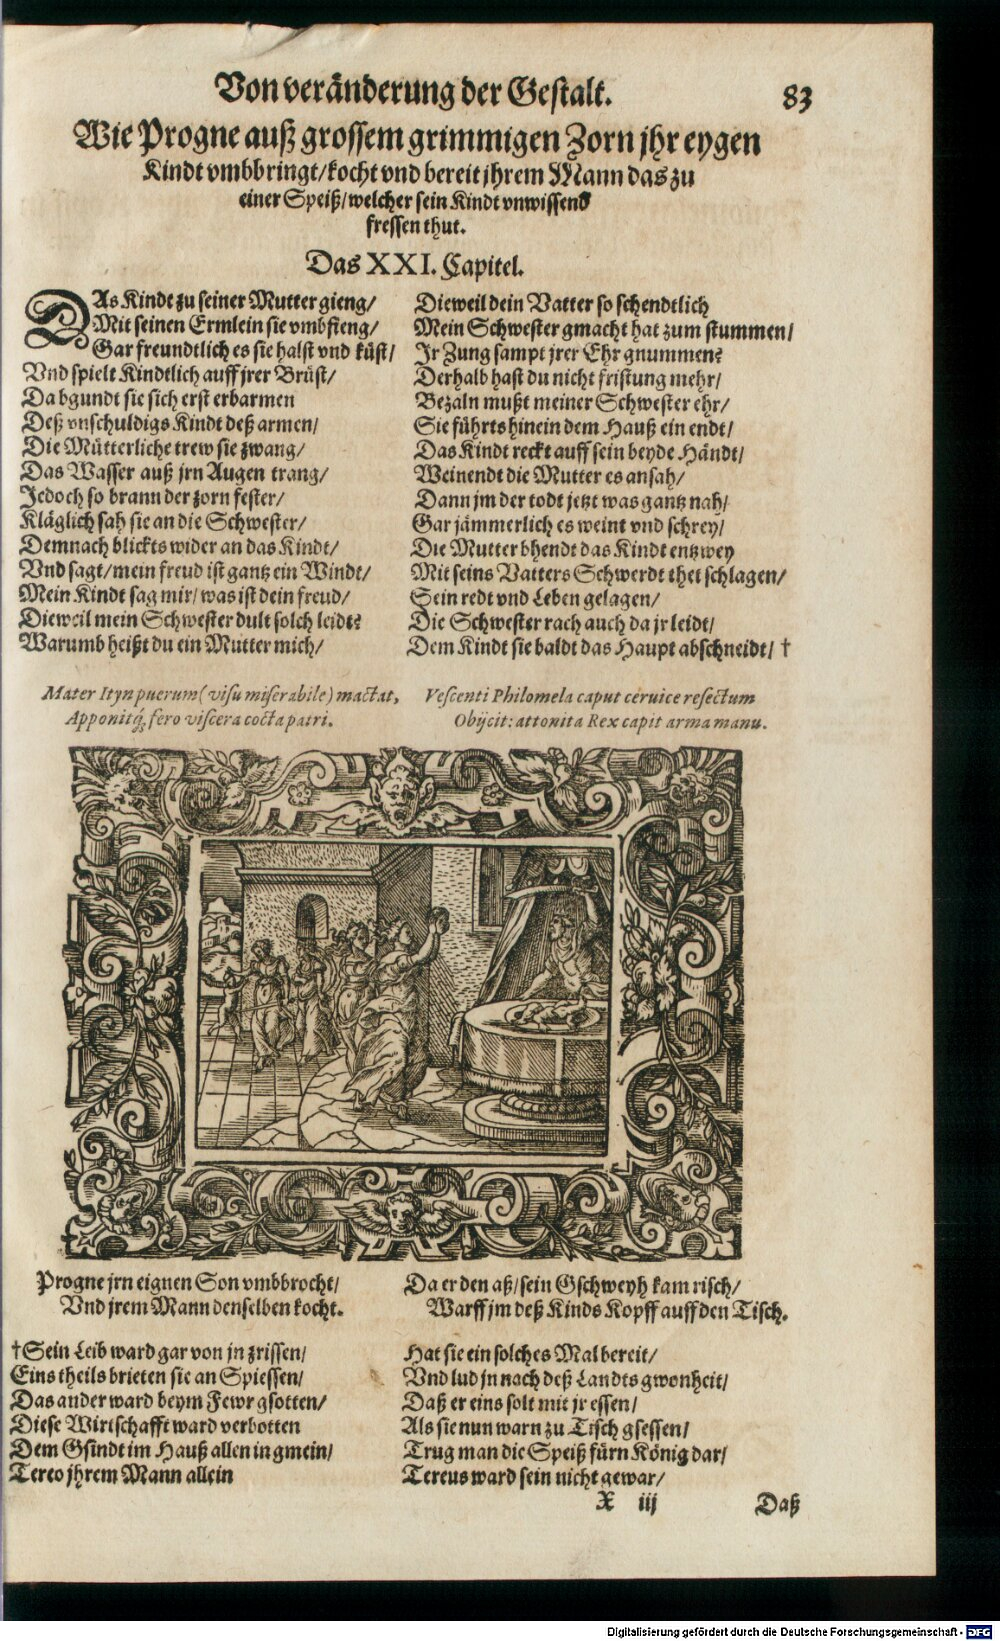 Von veränderung der Gestalt. 83
Wie Progne auß grossem grimmigen Zorn jhr eygen
Kindt vmbbringt/kocht vnd bereit jhrem Mann das zu
einer Speiß/welcher sein Kindt vnwissend
fressen thut.
Das XXI. Capitel.
DAs Kindt zu seiner Mutter gieng/
Mit seinen Ermlein sie vmbfieng/
Gar freundtlich es sie halst vnd küst/
Vnd spielt Kindtlich auff jrer Brüst/
Da bgundt sie sich erst erbarmen
Deß vnschuldigs Kindt deß armen/
Die Mütterliche trew sie zwang/
Das Wasser auß jrn Augen trang/
Jedoch so brann der zorn fester/
Kläglich sah sie an die Schwester/
Demnach blickts wider an das Kindt/
Vnd sagt/mein freud ist gantz ein Windt/
Mein Kindt sag mir/was ist dein freud/
Dieweil mein Schwester dult solch leidt?
Warumb heißt du ein Mutter mich/
Dieweil dein Vatter so schendtlich
Mein Schwester gmacht hat zum stummen/
Jr Zung sampt jrer Ehr gnummen?
Derhalb hast du nicht fristung mehr/
Bezaln mußt meiner Schwester ehr/
Sie führts hinein dem Hauß ein endt/
Das Kindt reckt auff sein beyde Händt/
Weinendt die Mutter es ansah/
Dann jm der todt jetzt was gantz nah/
Gar jämmerlich es weint vnd schrey/
Die Mutter bhendt das Kindt entzwey
Mit seins Vatters Schwerdt thet schlagen/
Sein redt vnd Leben gelagen/
Die Schwester rach auch da jr leidt/
Dem Kindt sie baldt das Haupt abschneidt/ †
Mater Ityn puerum (visu miserabile) mactat,
Apponitq́; fero viscera cocta patri.
Vescenti Philomela caput ceruice resectum
Obijcit: attonita Rex capit arma manu.
Progne jrn eignen Son vmbbrocht/
Vnd jrem Mann denselben kocht.
Da er den aß/sein Gschweyh kam risch/
Warff jm deß Kinds Kopff auff den Tisch.
† Sein Leib ward gar von jn zrissen/
Eins theils brieten sie an Spiessen/
Das ander ward beym Fewr gsotten/
Diese Wirtschafft ward verbotten
Dem Gsindt im Hauß allen in gmein/
Tereo jhrem Mann allein
Hat sie ein solches Mal bereit/
Vnd lud jn nach deß Landts gwonheit/
Daß er eins solt mit jr essen/
Als sie nun warn zu Tisch gsessen/
Trug man die Speiß fürn König dar/
Tereus ward sein nicht gewar/
X iij Daß
Digitalisierung gefördert durch die Deutsche Forschungsgemeinschaft - DFG